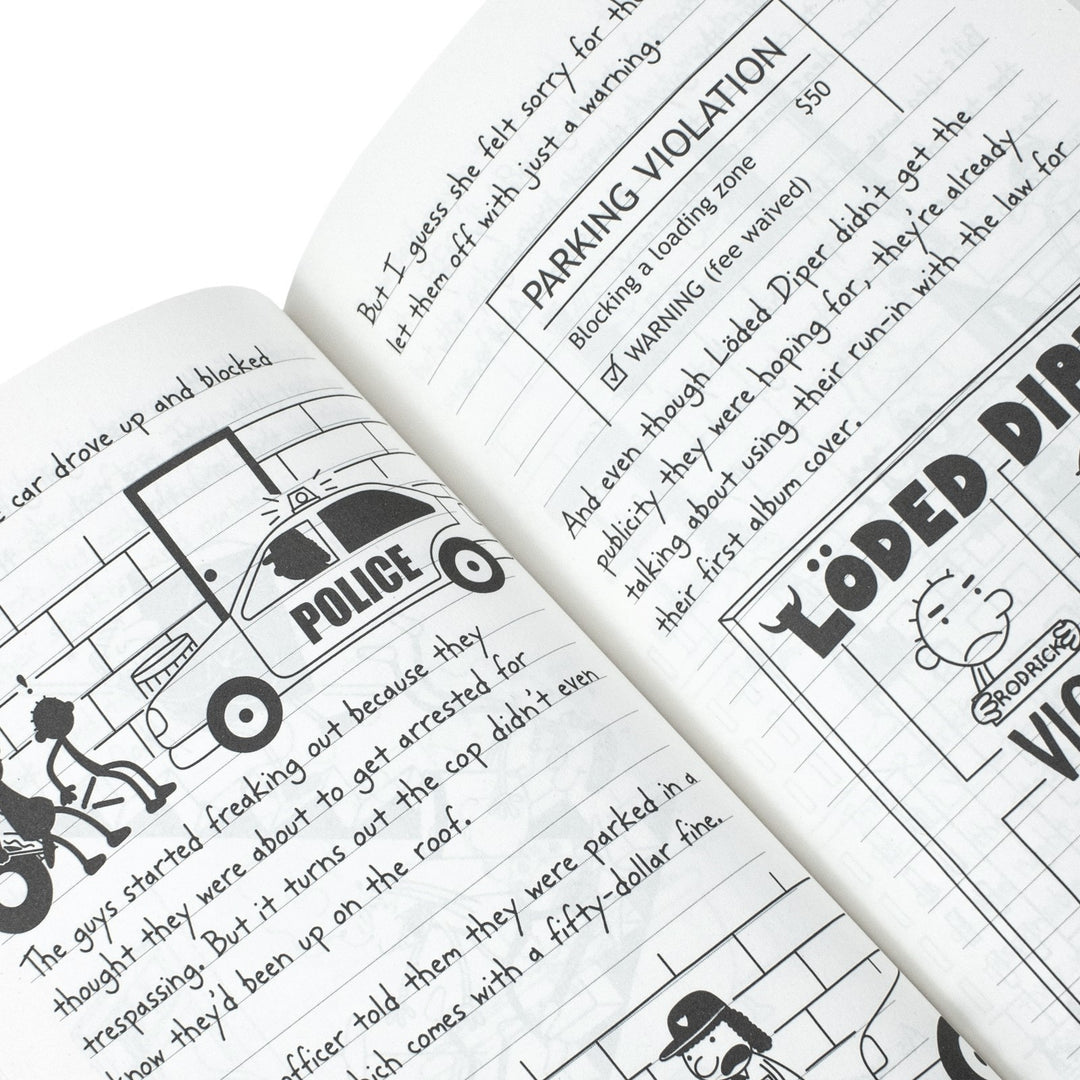 car drove up and blocked
POLICE
!
The guys started freaking out because they
thought they were about to get arrested for
trespassing. But it turns out the cop didn't even
know they'd been up on the roof.
officer told them they were parked in a
which comes with a fifty-dollar fine.
But I guess she felt sorry for
let them off with just a warning.
PARKING VIOLATION
Blocking a loading zone $50
☑ WARNING (fee waived)
And even though Löded Diper didn't get the
publicity they were hoping for, they're already
talking about using their run-in with the law for
their first album cover.
LÖDED DIP
RODRICK